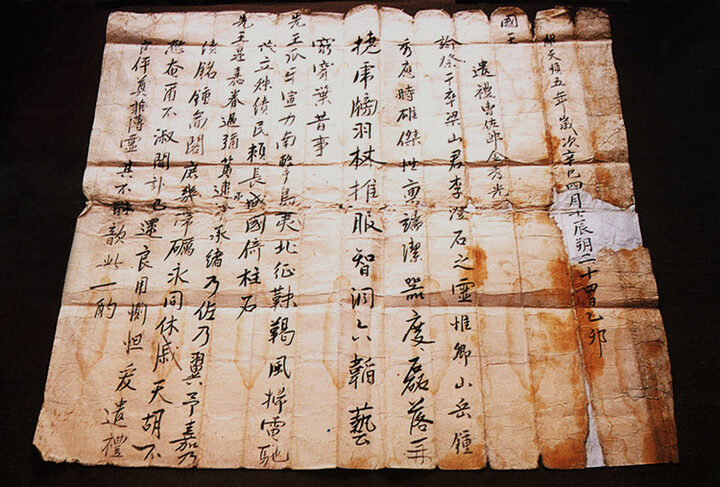 維天順五年歲次辛巳四月壬辰朔二十四日乙卯
國王
遣禮曹佐郎金光
諭祭于卒梁山君李澄石之靈惟卿山岳鍾
秀應時雄傑性稟端潔器度磊落再
捷虎牓羽林推服智洞六韜藝
窮穿葉昔事
先王爪牙宣力南擊島夷北征靺鞨風掃電馳
茂立殊績民賴長城國倚柱石
先王是眷遇彌篤逮予承緒乃佐乃翼予嘉乃
績銘鍾閣庶幾帶礪永同休戚天胡不
憖奄爾不淑聞訃已還良用惻怛爰遣禮
官伻奠靈其不昧歆此一酌